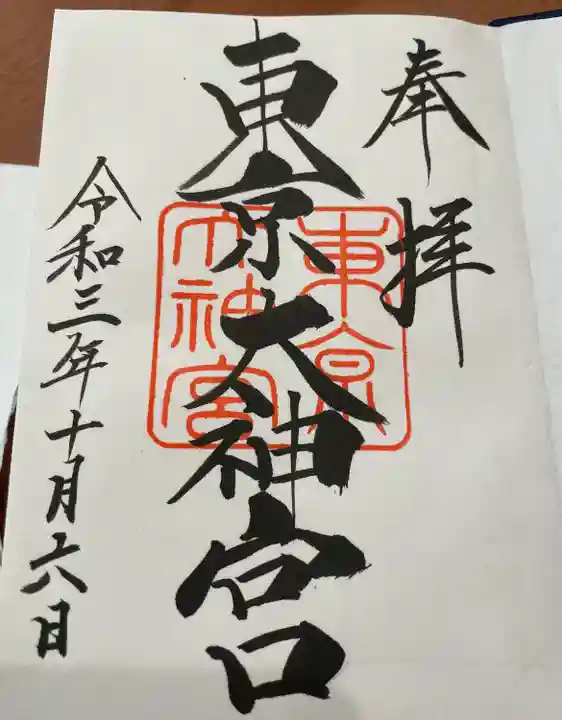 奉拝
東京大神宮
東京
大神宮
令和三年十月六日